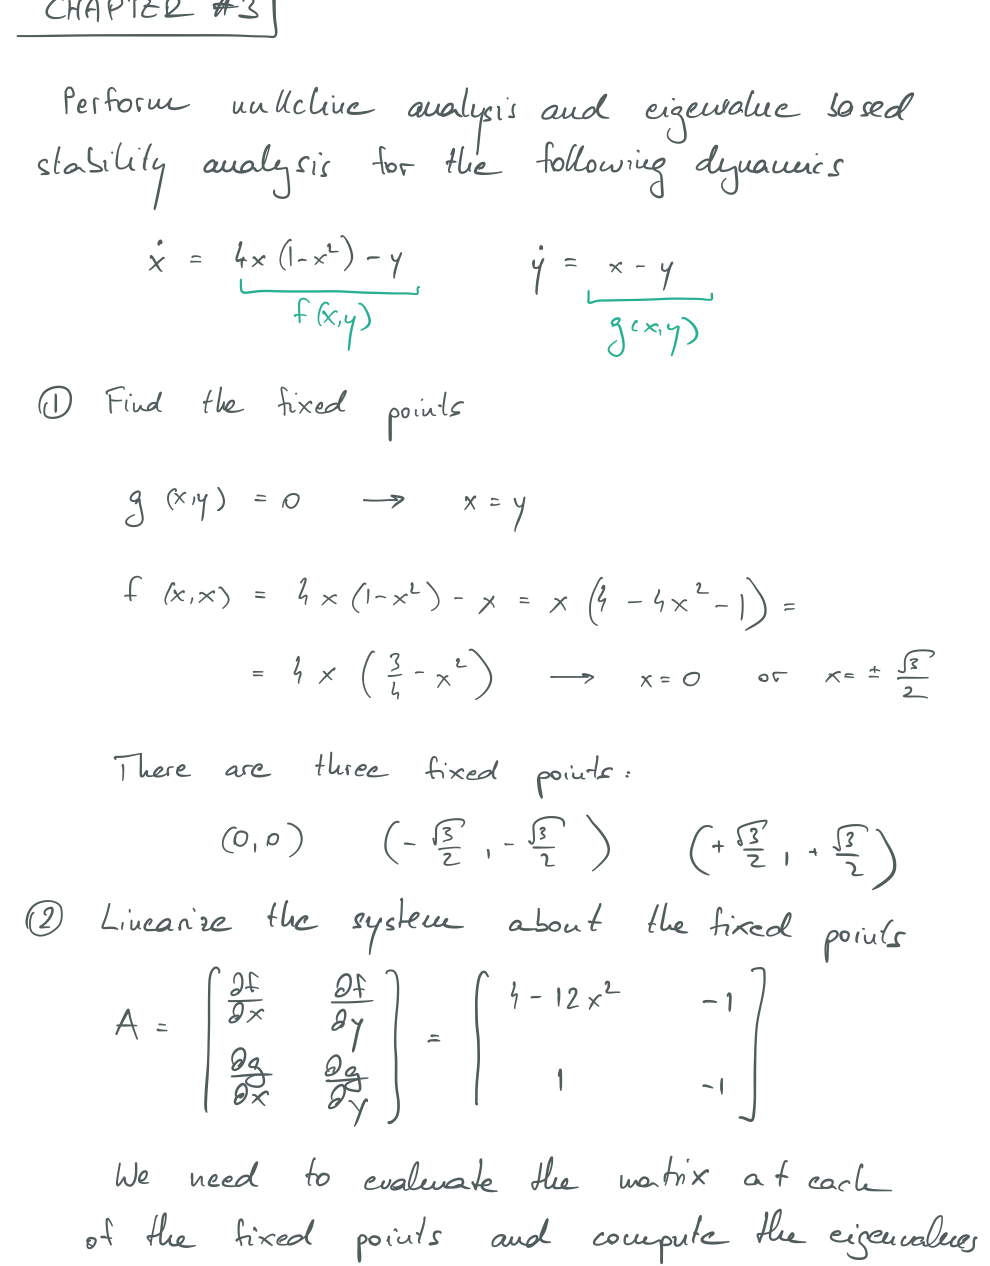 CHAPTER #3
Perform nullcline analysis and eigenvalue based
stability analysis for the following dynamics
ẋ = 4x (1-x²) - y    ẏ = x - y
f(x,y)    g(x,y)
① Find the fixed points
g (x,y) = 0 → x = y
f (x,x) = 4x (1-x²) - x = x (4 - 4x² - 1) =
= 4x (3/4 - x²) → x = 0 or x = ± √3/2
There are three fixed points:
(0,0) (-√3/2, -√3/2) (+√3/2, +√3/2)
② Linearize the system about the fixed points
A = [∂f/∂x ∂f/∂y; ∂g/∂x ∂g/∂y] = [4 - 12x² -1; 1 -1]
We need to evaluate the matrix at each
of the fixed points and compute the eigenvalues